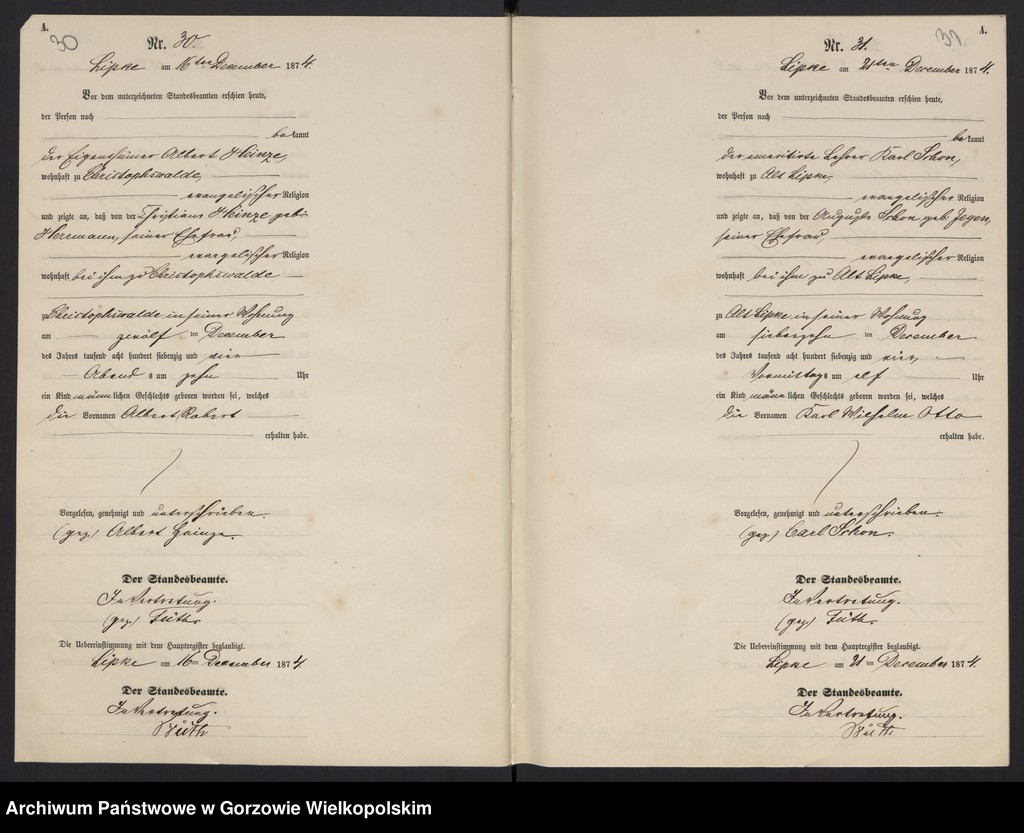 A.
30
Nr. 30.
Lipke am 16ten December 1874.
Vor dem unterzeichneten Standesbeamten erschien heute,
der Person nach
bekannt
der Eigenthümer Albert Heinze,
wohnhaft zu Christophswalde,
evangelischer Religion
und zeigte an, daß von der Christiane Heinze geb.
Herrmann, seiner Ehefrau,
evangelischer Religion
wohnhaft bei ihm zu Christophswalde
zu Christophswalde in seiner Wohnung
am zwölf ten December
des Jahres tausend acht hundert siebenzig und vier
Abends um zehn Uhr
ein Kind männlichen Geschlechts geboren worden sei, welches
die Vornamen Albert Robert
erhalten habe.
Vorgelesen, genehmigt und unterschrieben.
(gez) Albert Heinze.
Der Standesbeamte.
In Vertretung.
(gez)
Die Uebereinstimmung mit dem Hauptregister beglaubigt.
Lipke am 16ten December 1874.
Der Standesbeamte.
In Vertretung.
A.
31
Nr. 31.
Lipke am 21ten December 1874.
Vor dem unterzeichneten Standesbeamten erschien heute,
der Person nach
bekannt
der emeritirte Lehrer Karl Schon,
wohnhaft zu Alt Lipke,
evangelischer Religion
und zeigte an, daß von der Auguste Schon geb. Jegen,
seiner Ehefrau,
evangelischer Religion
wohnhaft bei ihm zu Alt Lipke,
zu Alt Lipke in seiner Wohnung
am siebzehn ten December
des Jahres tausend acht hundert siebenzig und vier,
Vormittags um elf Uhr
ein Kind männlichen Geschlechts geboren worden sei, welches
die Vornamen Karl Wilhelm Otto
erhalten habe.
Vorgelesen, genehmigt und unterschrieben.
(gez) Carl Schon.
Der Standesbeamte.
In Vertretung.
(gez)
Die Uebereinstimmung mit dem Hauptregister beglaubigt.
Lipke am 21ten December 1874.
Der Standesbeamte.
In Vertretung.
Archiwum Państwowe w Gorzowie Wielkopolskim